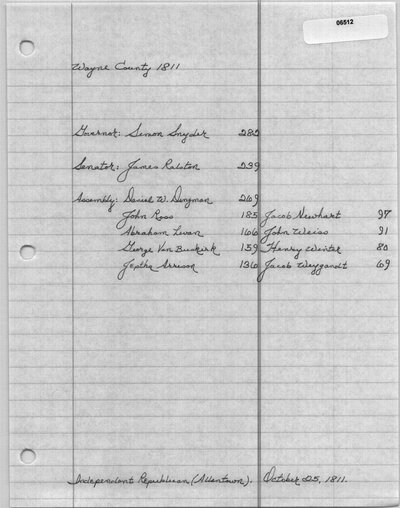 06512
Wayne County 1811
Governor: Simon Snyder 282
Senator: James Ralston 239
Assembly: Daniel W. Dingman 269
John Ross 185 Jacob Newhart 97
Abraham Levan 166 John Weiss 91
George Van Buskirk 159 Henry Winter 80
Jeptha Arrison 136 Jacob Weygandt 69
Independent Republican (Allentown). October 25, 1811.